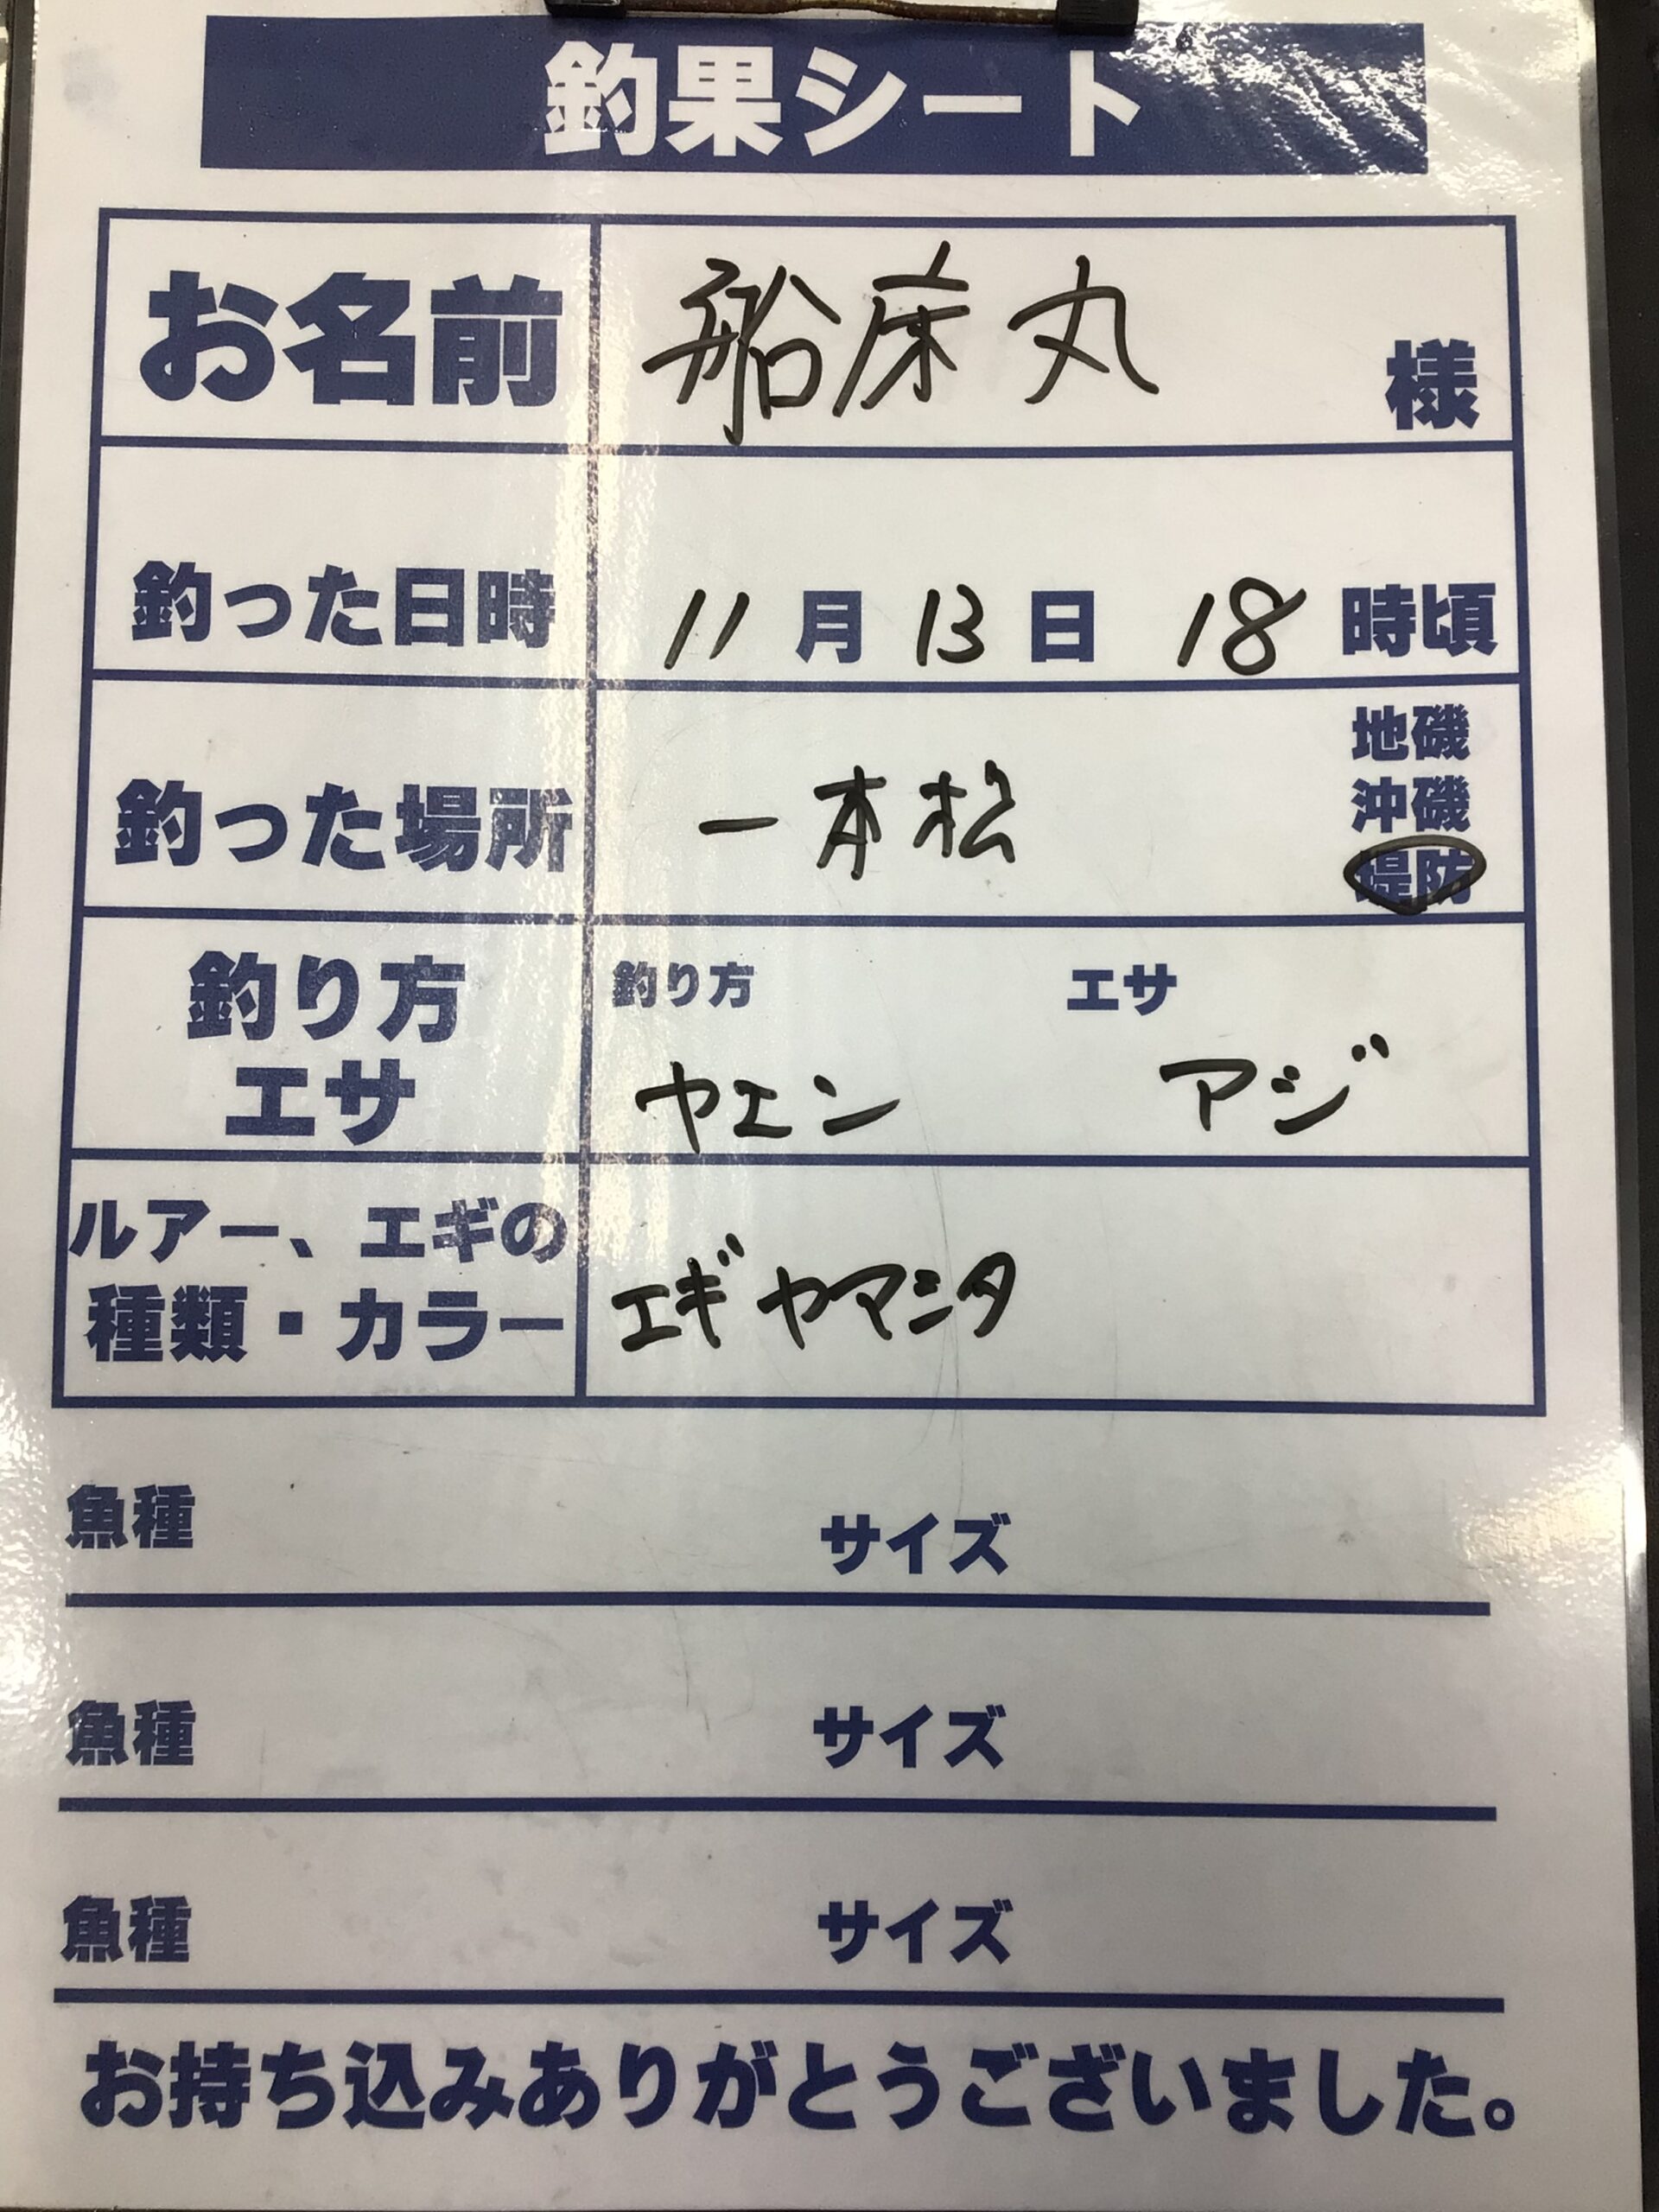 釣果シート
お名前 船床丸 様
釣った日時 11月13日 18時頃
釣った場所 一本松 地磯
沖磯
堤防
釣り方
エサ
釣り方 エサ
ヤエン アジ
ルアー、エギの
種類・カラー
エギヤマシタ
魚種 サイズ
魚種 サイズ
魚種 サイズ
お持ち込みありがとうございました。